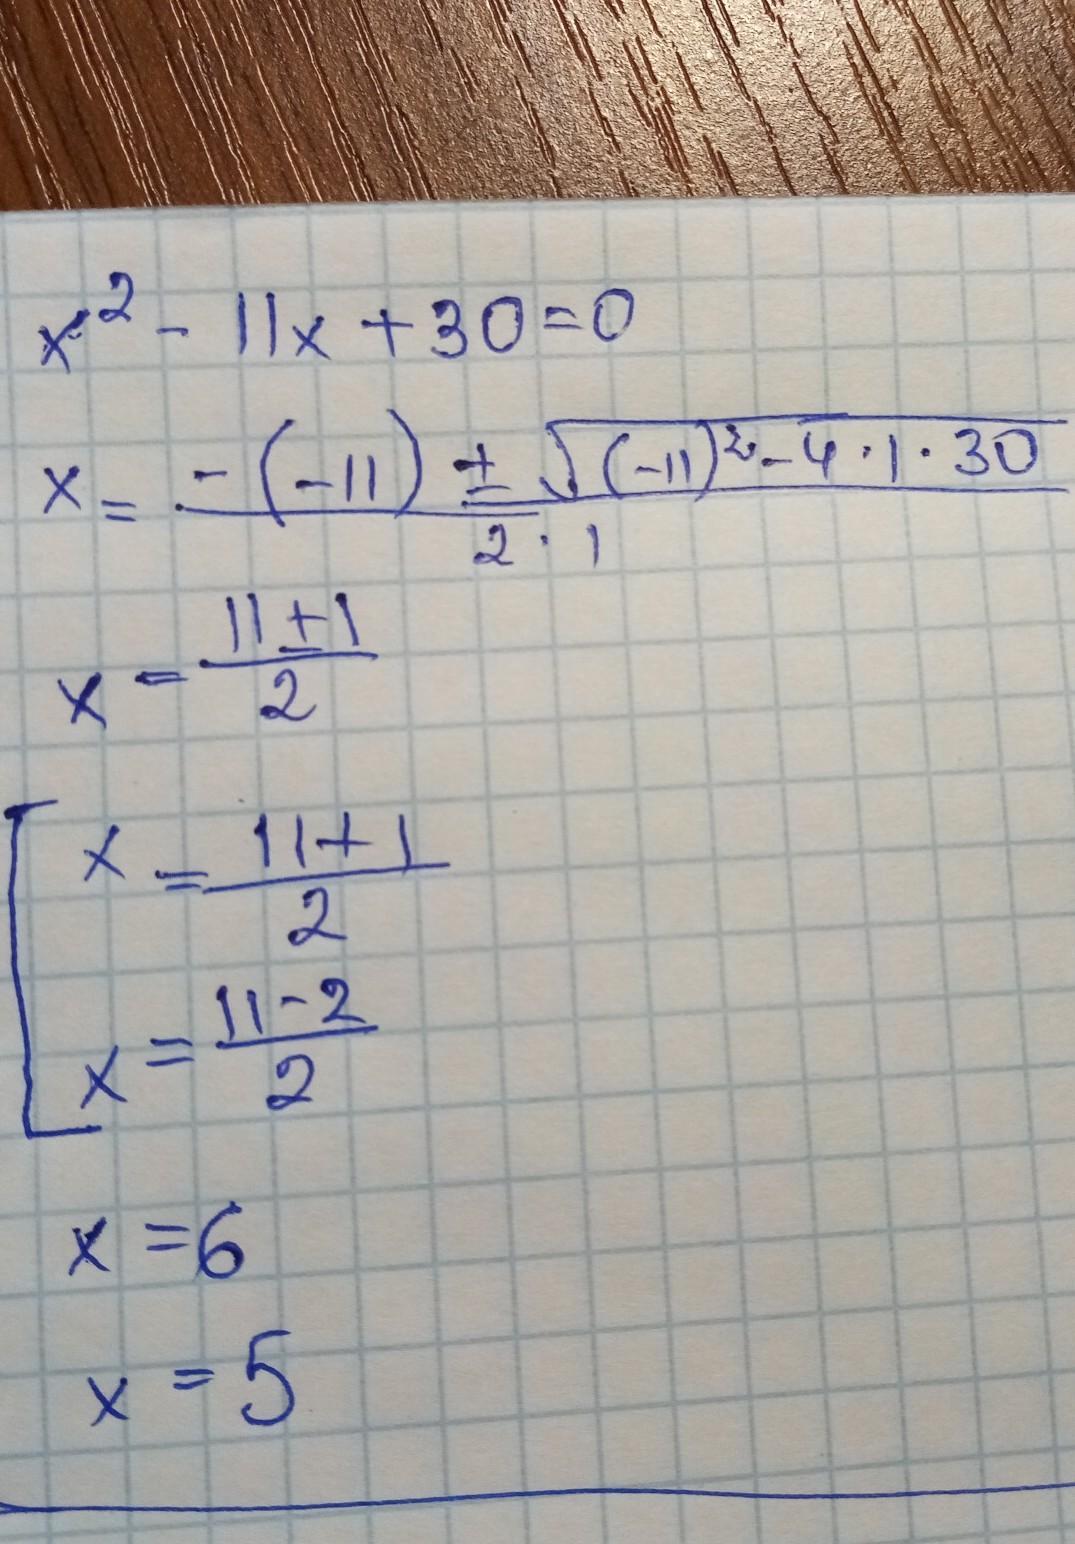 x² - 11x + 30 = 0
x = (-(-11) ± √((-11)² - 4·1·30)) / (2·1)
x = (11 ± 1) / 2
[ x = (11 + 1) / 2
x = (11 - 2) / 2
x = 6
x = 5